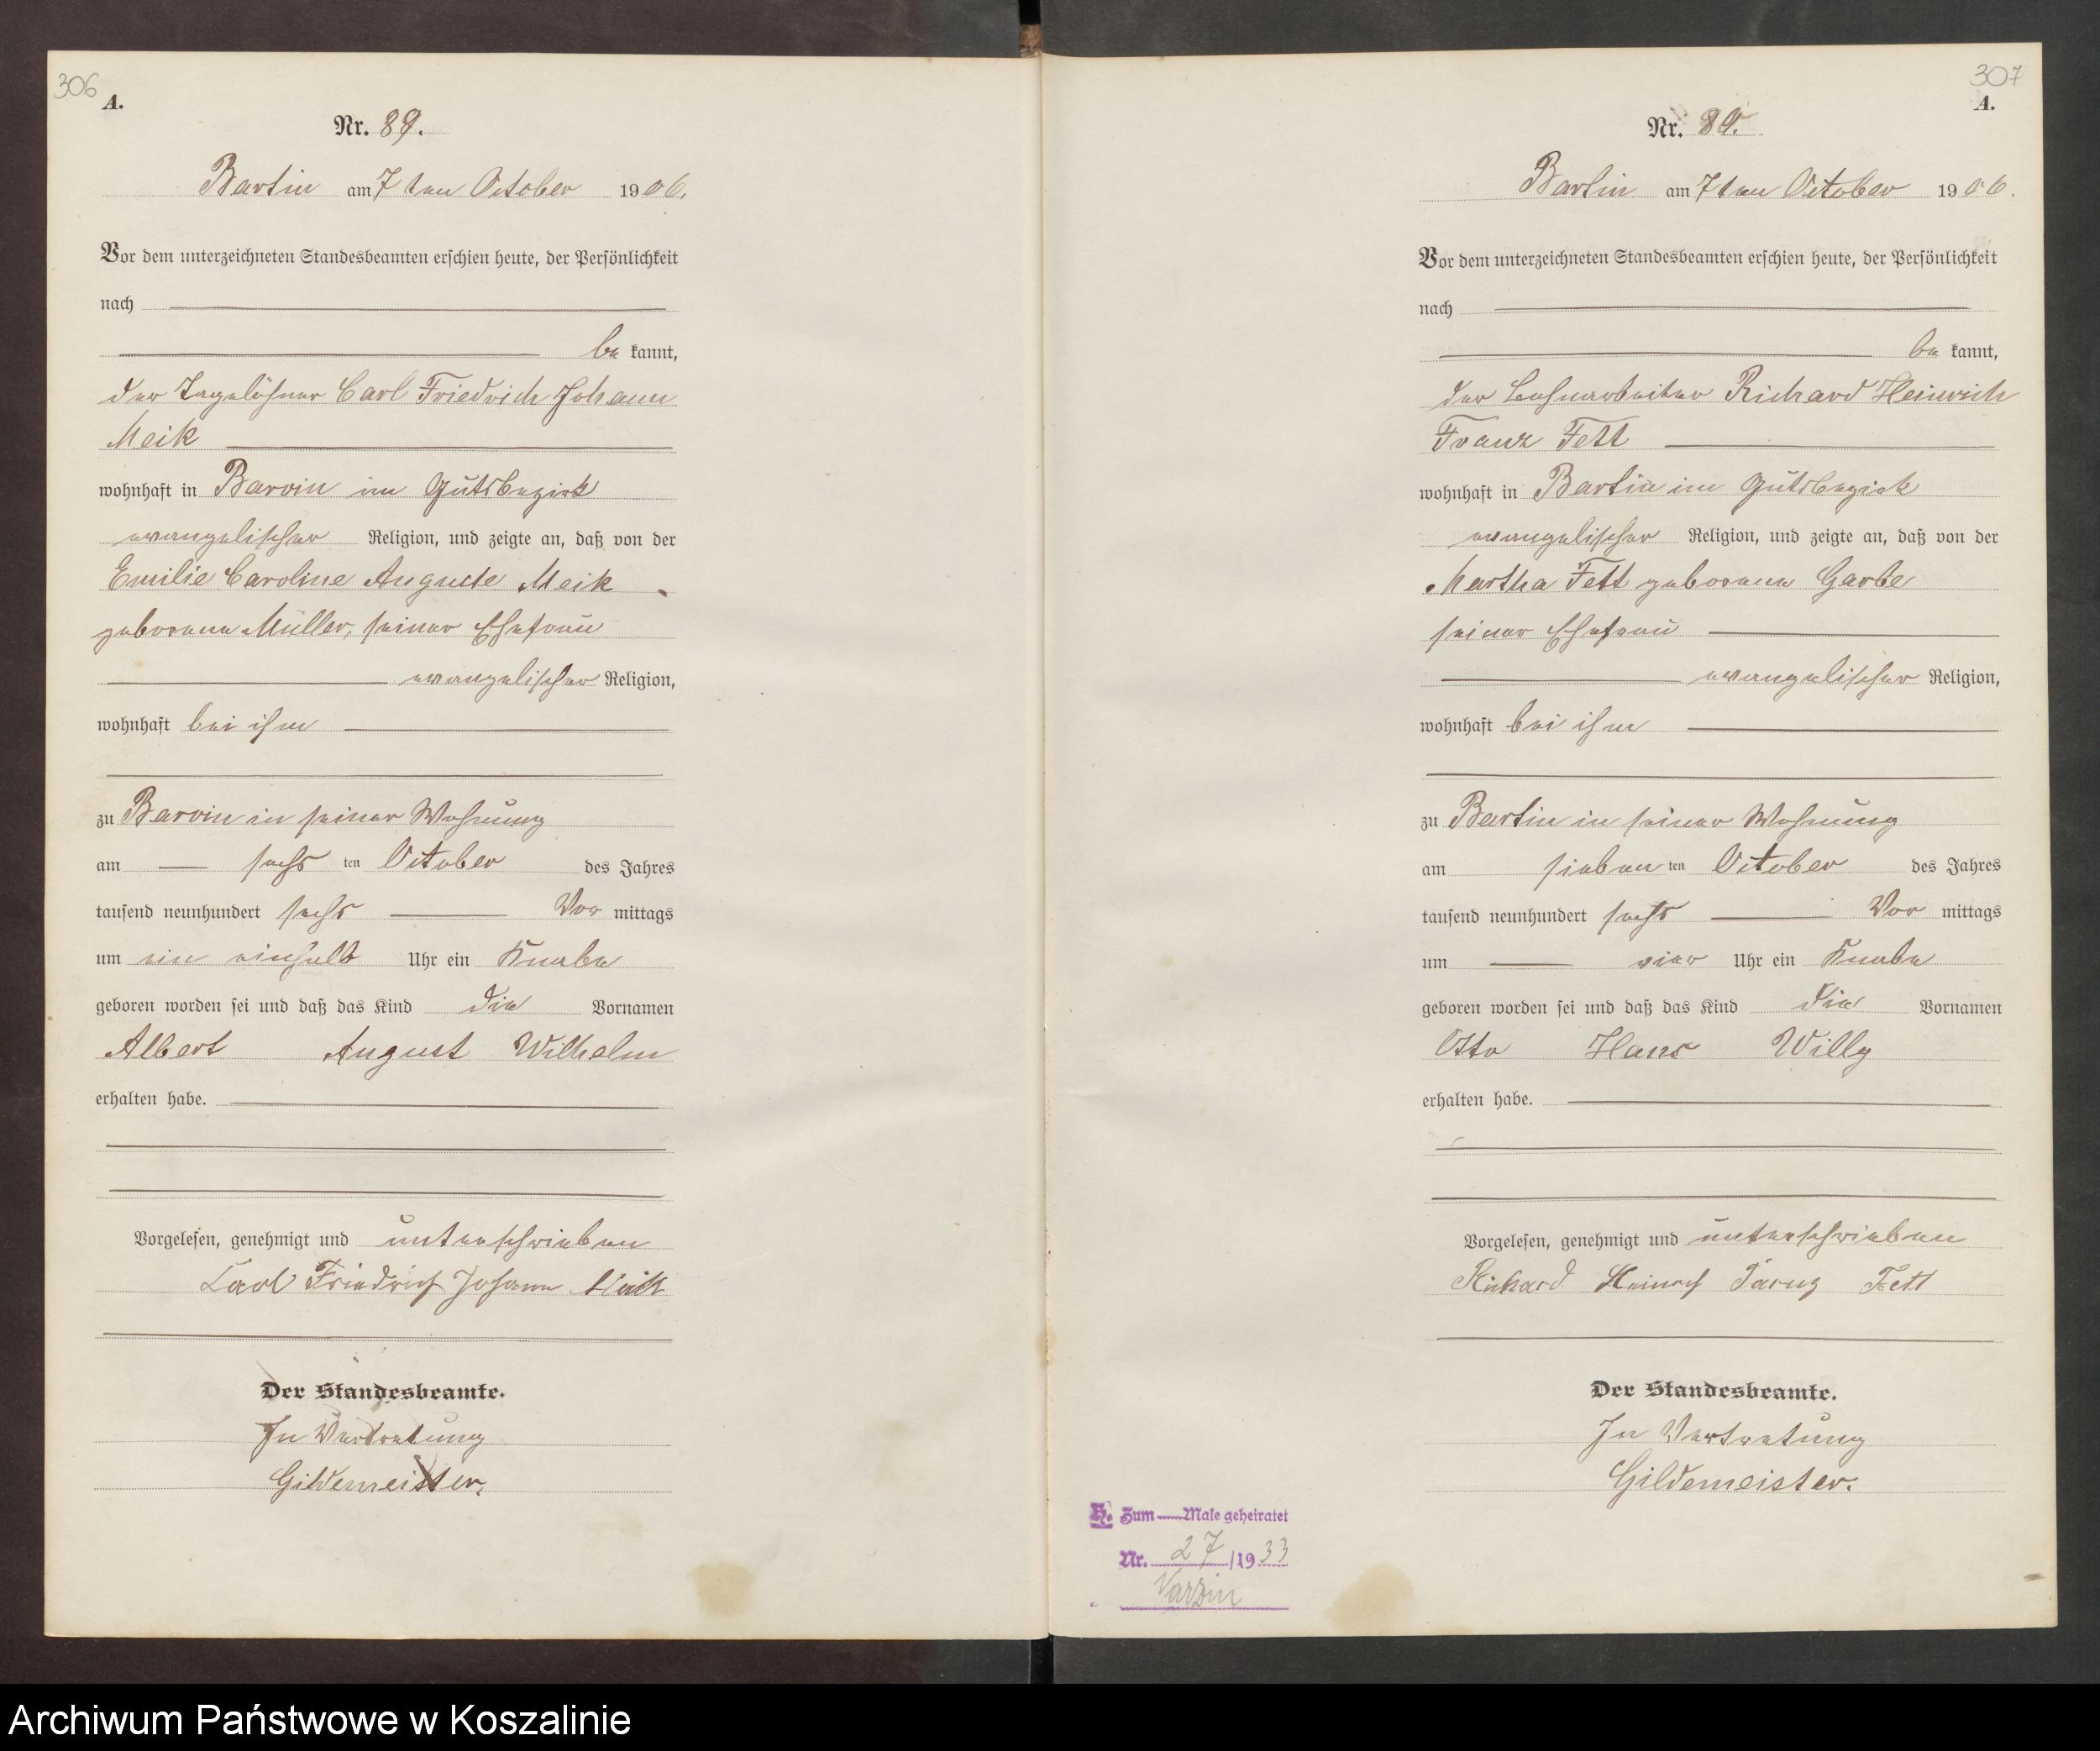 306
A.
Nr. 89.
Bartin am 7ten October 1906.
Vor dem unterzeichneten Standesbeamten erschien heute, der Persönlichkeit
nach
be kannt,
der Tagelöhner Carl Friedrich Johann
Meik
wohnhaft in Barvin im Gutsbezirk
evangelischer Religion, und zeigte an, daß von der
Emilie Caroline Auguste Meik
geborene Müller, seiner Ehefrau
evangelischer Religion,
wohnhaft bei ihm
zu Barvin in seiner Wohnung
am sechs ten October des Jahres
tausend neunhundert sechs Vor mittags
um ein einhalb Uhr ein Knabe
geboren worden sei und daß das Kind die Vornamen
Albert August Wilhelm
erhalten habe.
Vorgelesen, genehmigt und unterschrieben
Carl Friedrich Johann Meik
Der Standesbeamte.
In Vertretung
Gildemeister.
307
A.
Nr.
Bartin am 7ten October 1906.
Vor dem unterzeichneten Standesbeamten erschien heute, der Persönlichkeit
nach
be kannt,
der Lohnarbeiter Richard Heinrich
Franz Fett
wohnhaft in Bartin im Gutsbezirk
evangelischer Religion, und zeigte an, daß von der
Martha Fett geborene Garbe
seiner Ehefrau
evangelischer Religion,
wohnhaft bei ihm
zu Bartin in seiner Wohnung
am sieben ten October des Jahres
tausend neunhundert sechs Vor mittags
um vier Uhr ein Knabe
geboren worden sei und daß das Kind die Vornamen
Otto Hans Willy
erhalten habe.
Vorgelesen, genehmigt und unterschrieben
Richard Heinrich Fett
Der Standesbeamte.
In Vertretung
Gildemeister.
H. Zum Male geheiratet
Nr. 27/1933
Varzin
Archiwum Państwowe w Koszalinie